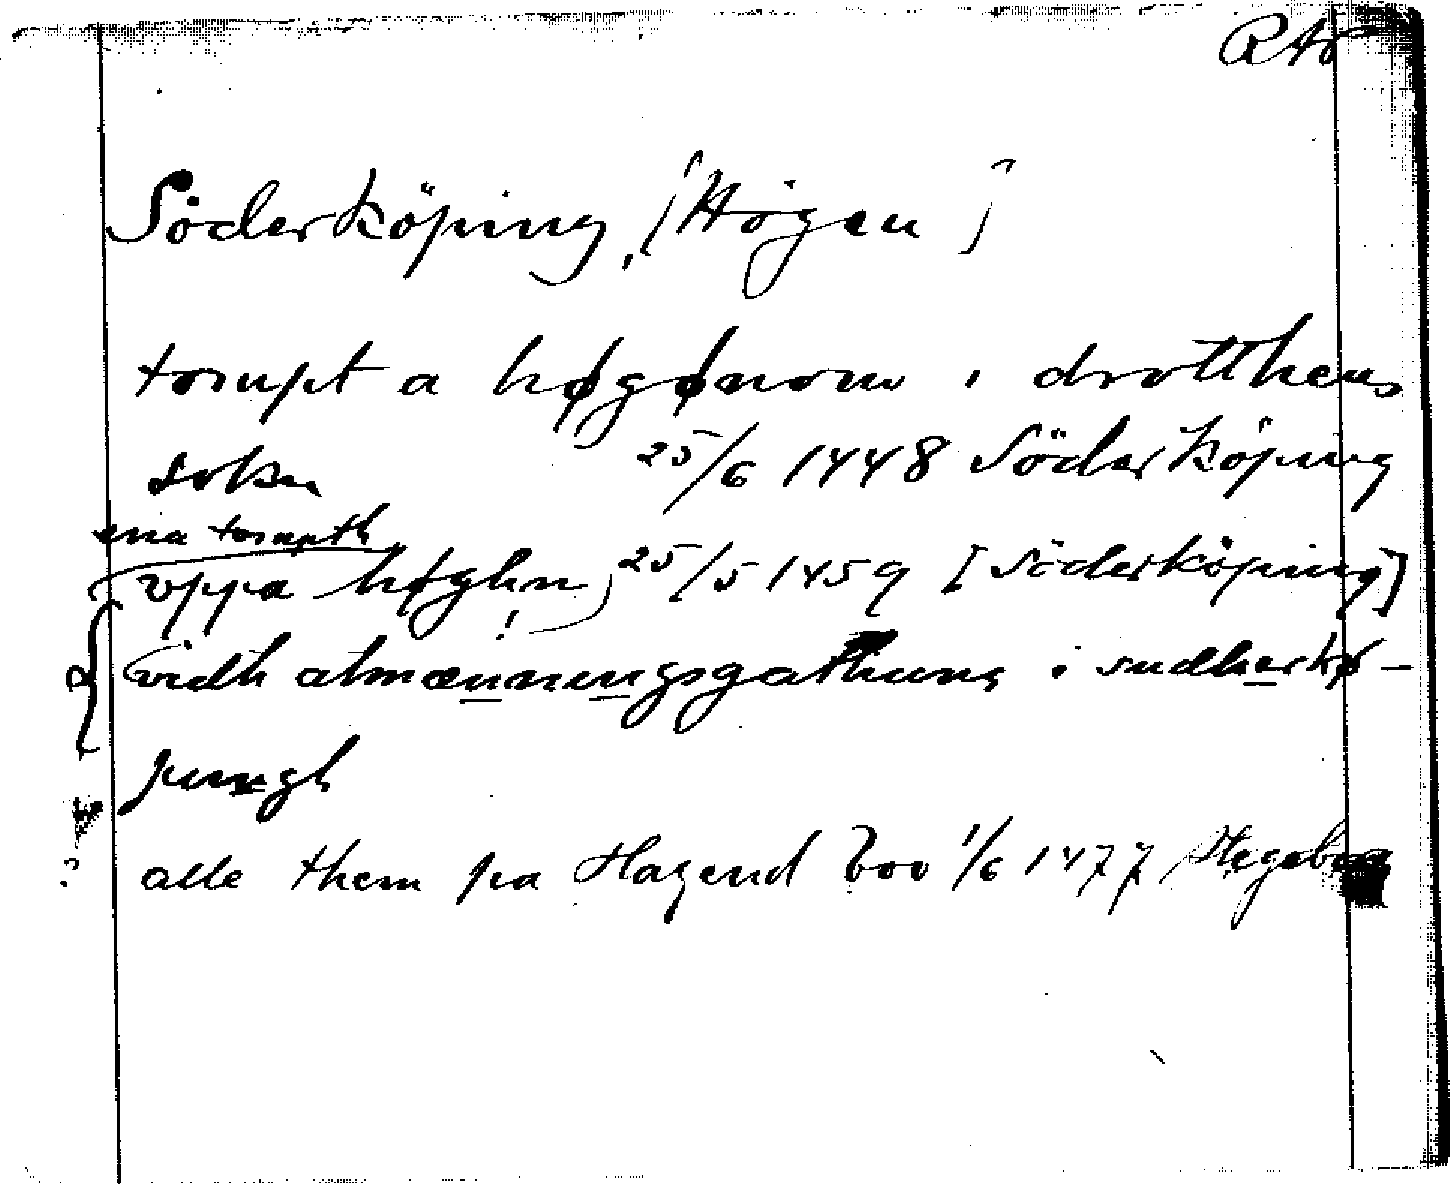 RAö
Söderköping, [Högen]
tompt a høgønom i drotthens
sokn 25/6 1448 Söderköping
ena tompth
vppa høghn 25/5 1459 [Söderköping]
!
vidh almænningsgathune i sudherkø-
pungh
alle them pa Hagend boo 1/6 1477 Stegeborg